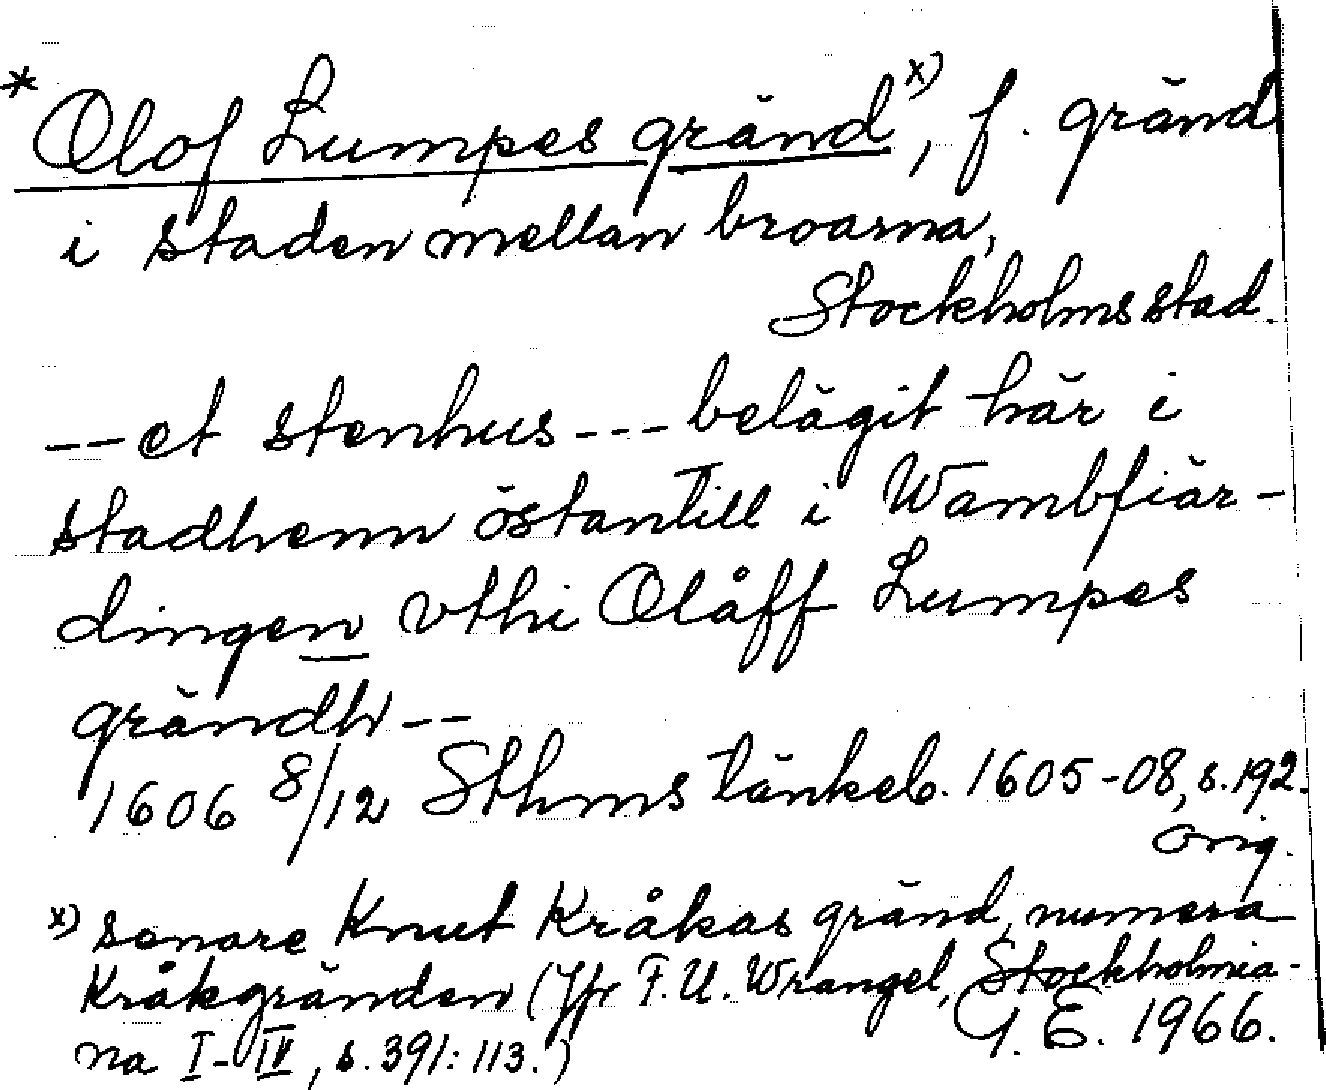 * Olof Lumpes gränd x), f. gränd
i staden mellan broarna,
Stockholms stad.
-- et stenhus --- belägit här i
stadhenn östantill i Wambfiär-
dingen vthi Olåff Lumpes
grändh --
1606 8/12 Sthms tänkeb. 1605-08, s. 192.
orig.
x) senare Knut Kråkas gränd, numera
Kråkgränden (Jfr F.U. Wrangel, Stockholmia-
na I-IV, s. 391: 113.)
G. E. 1966.